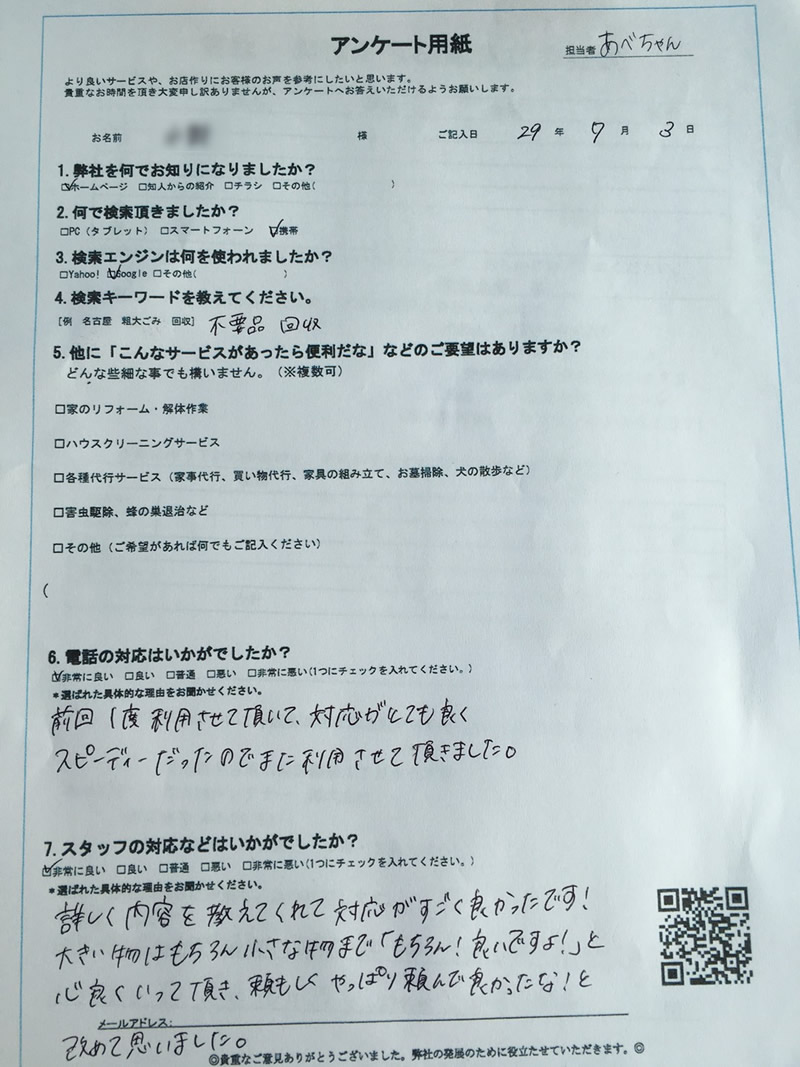 アンケート用紙
担当者 あべちゃん
より良いサービスや、お店作りにお客様のお声を参考にしたいと思います。
貴重なお時間を頂き大変申し訳ありませんが、アンケートへお答えいただけるようお願いします。
お名前 様 ご記入日 29 年 7 月 3 日
1. 弊社を何でお知りになりましたか？
☑ホームページ □知人からの紹介 □チラシ □その他( )
2. 何で検索頂きましたか？
□PC（タブレット） □スマートフォーン ☑携帯
3. 検索エンジンは何を使われましたか？
□Yahoo! ☑Google □その他( )
4. 検索キーワードを教えてください。
[例 名古屋 粗大ごみ 回収] 不要品 回収
5. 他に「こんなサービスがあったら便利だな」などのご要望はありますか？
どんな些細な事でも構いません。（※複数可）
□家のリフォーム・解体作業
□ハウスクリーニングサービス
□各種代行サービス（家事代行、買い物代行、家具の組み立て、お墓掃除、犬の散歩など）
□害虫駆除、蜂の巣退治など
□その他（ご希望があれば何でもご記入ください）
(
6. 電話の対応はいかがでしたか？
☑非常に良い □良い □普通 □悪い □非常に悪い(1つにチェックを入れてください。)
*選ばれた具体的な理由をお聞かせください。
前回1度利用させて頂いて、対応がとても良く
スピーディーだったのでまた利用させて頂きました。
7. スタッフの対応などはいかがでしたか？
☑非常に良い □良い □普通 □悪い □非常に悪い(1つにチェックを入れてください。)
*選ばれた具体的な理由をお聞かせください。
詳しく内容を教えてくれて対応がすごく良かったです！
大きい物はもちろん小さな物まで「もちろん！良いですよ！」と
心良くいって頂き、頼もしくやっぱり頼んで良かったな！と
メールアドレス:
改めて思いました。
◎貴重なご意見ありがとうございました。弊社の発展のために役立たせていただきます。◎